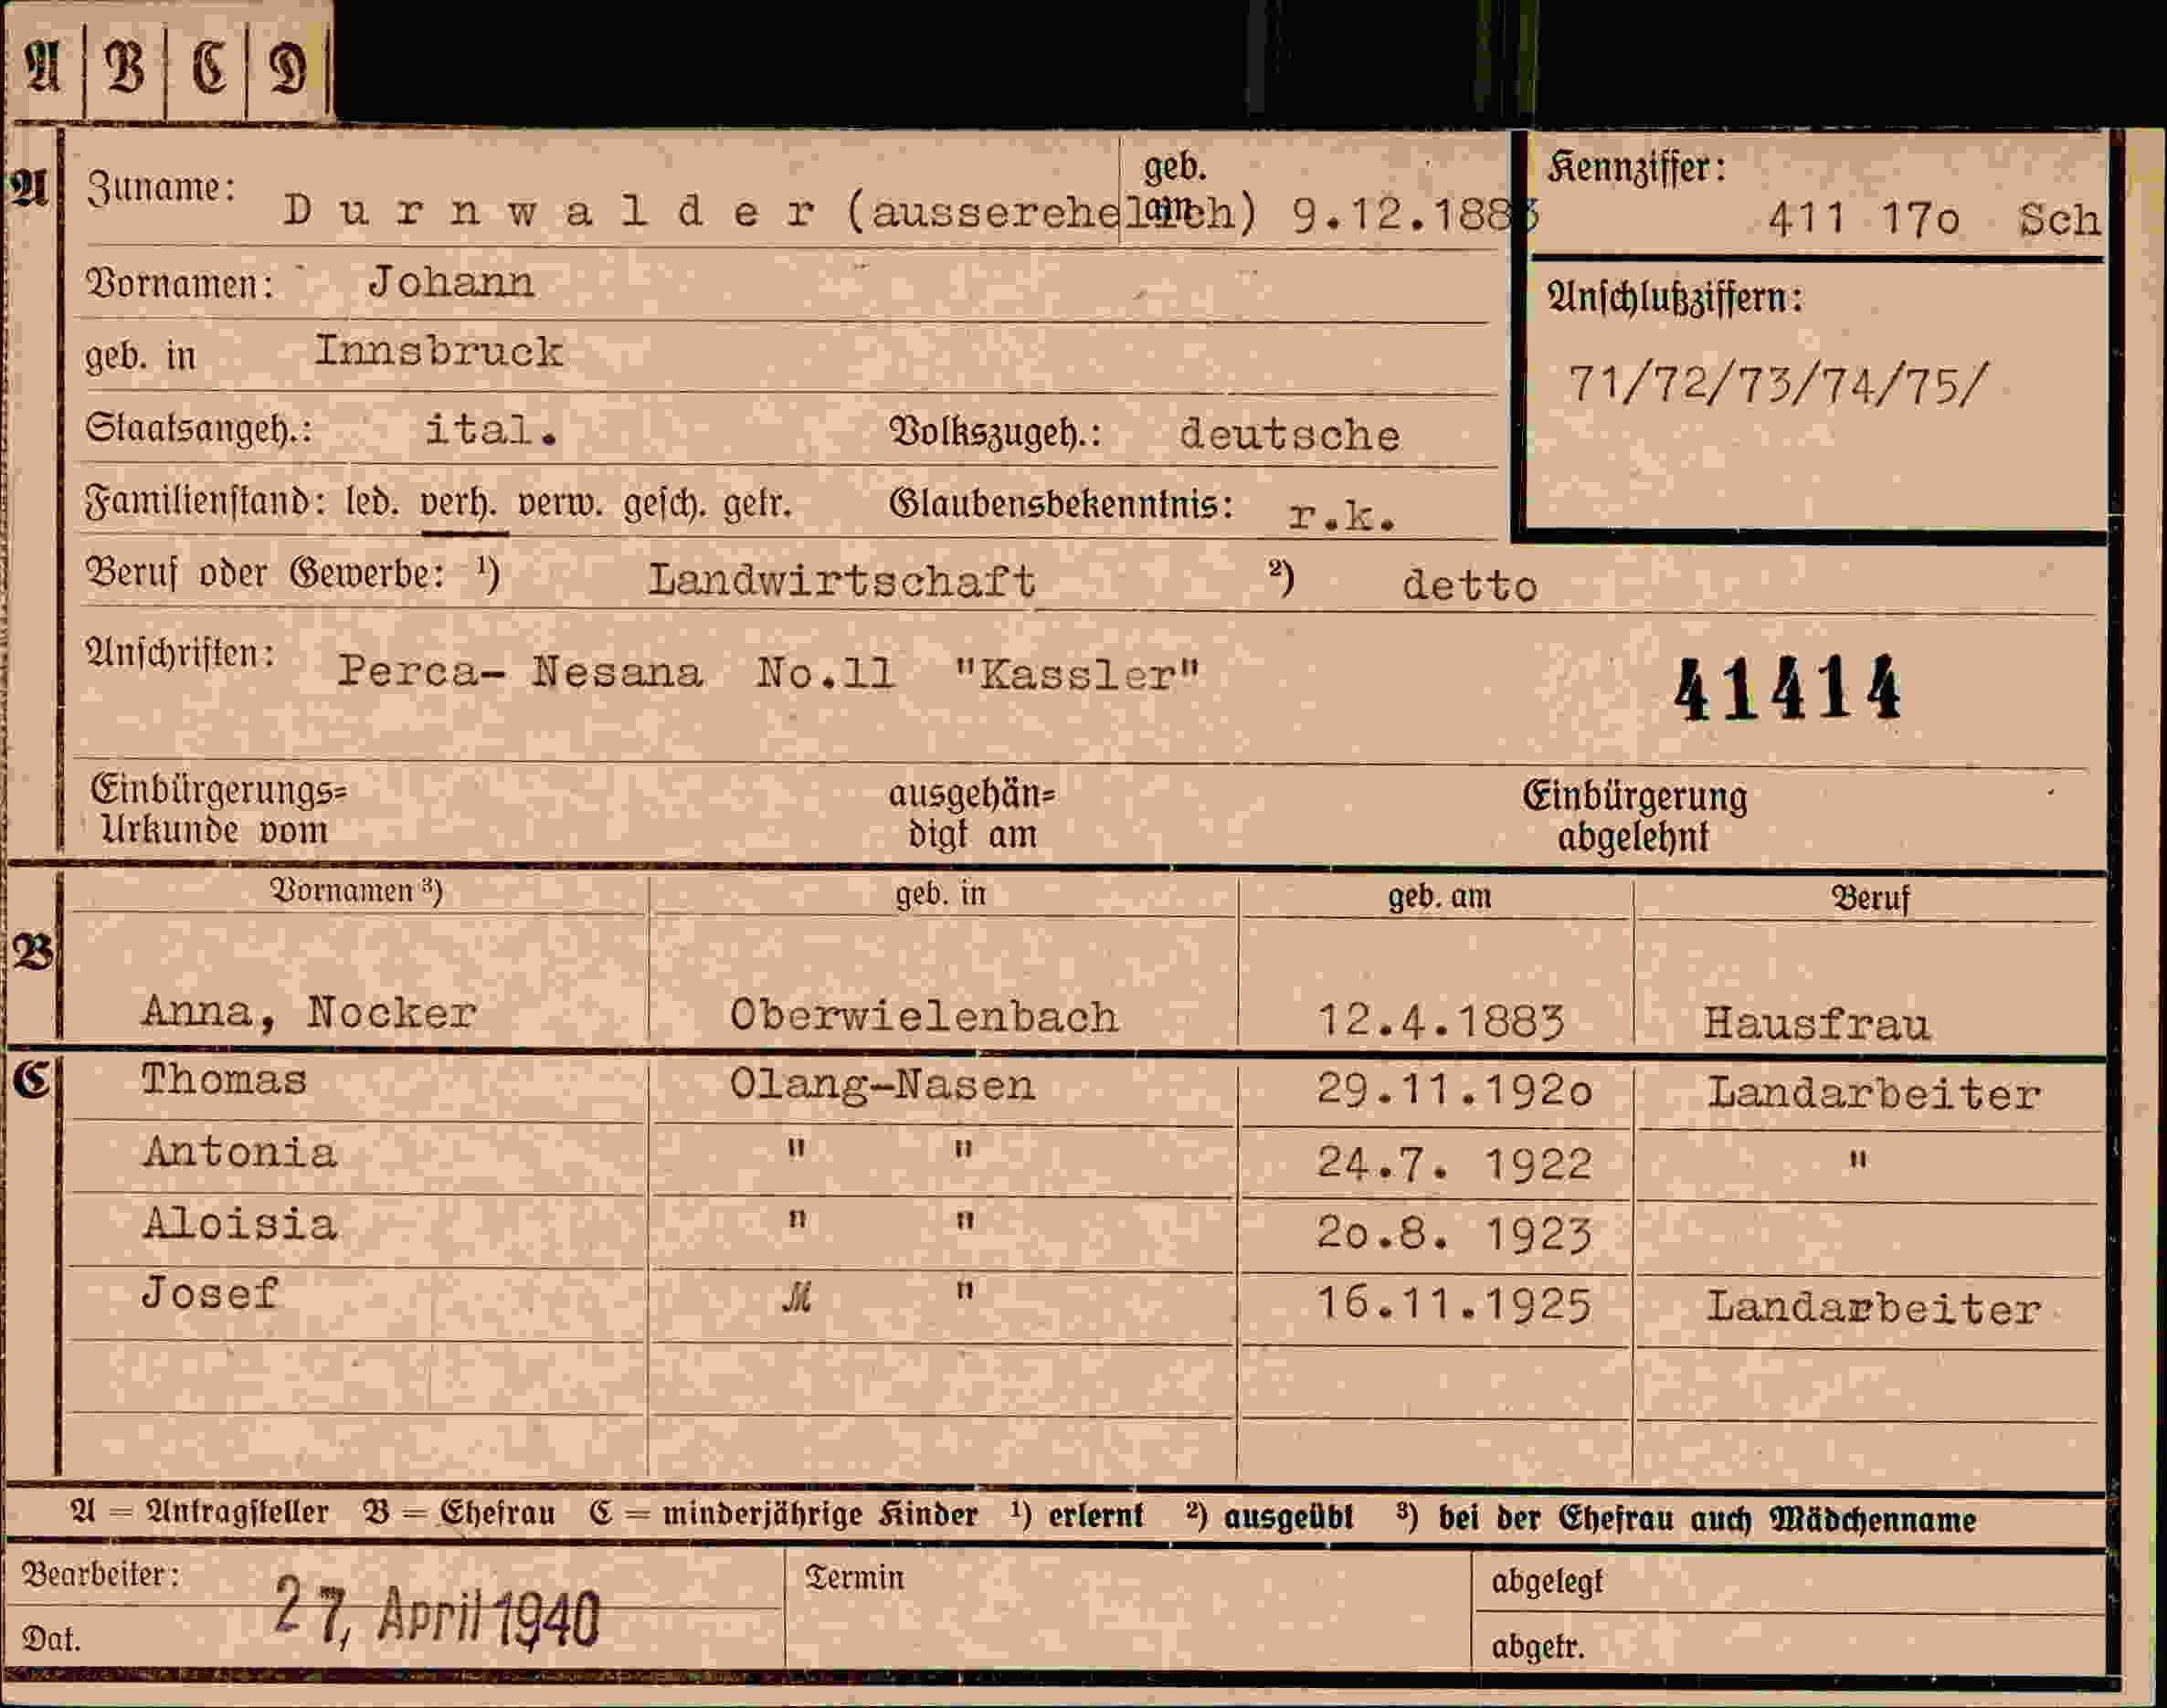 A | B | C | D
A Zuname: Durnwalder (ausserehelich) geb. am 9.12.1883
Kennziffer: 411 17o Sch
Vornamen: Johann
geb. in Innsbruck
Anschlußziffern:
71/72/73/74/75/
Staatsangeh.: ital. Volkszugeh.: deutsche
Familienstand: led. verh. verw. gesch. getr. Glaubensbekenntnis: r.k.
Beruf oder Gewerbe: ¹) Landwirtschaft ²) detto
Anschriften: Perca- Nesana No.11 "Kassler"
41414
Einbürgerungs= ausgehän= Einbürgerung
Urkunde vom digt am abgelehnt
Vornamen ³) geb. in geb. am Beruf
B
Anna, Nocker Oberwielenbach 12.4.1883 Hausfrau
C Thomas Olang-Nasen 29.11.192o Landarbeiter
Antonia " " 24.7. 1922 "
Aloisia " " 2o.8. 1923
Josef " 16.11.1925 Landarbeiter
A = Antragsteller B = Ehefrau C = minderjährige Kinder ¹) erlernt ²) ausgeübt ³) bei der Ehefrau auch Mädchenname
Bearbeiter: Termin abgelegt
27. April 1940
Dat. abgetr.